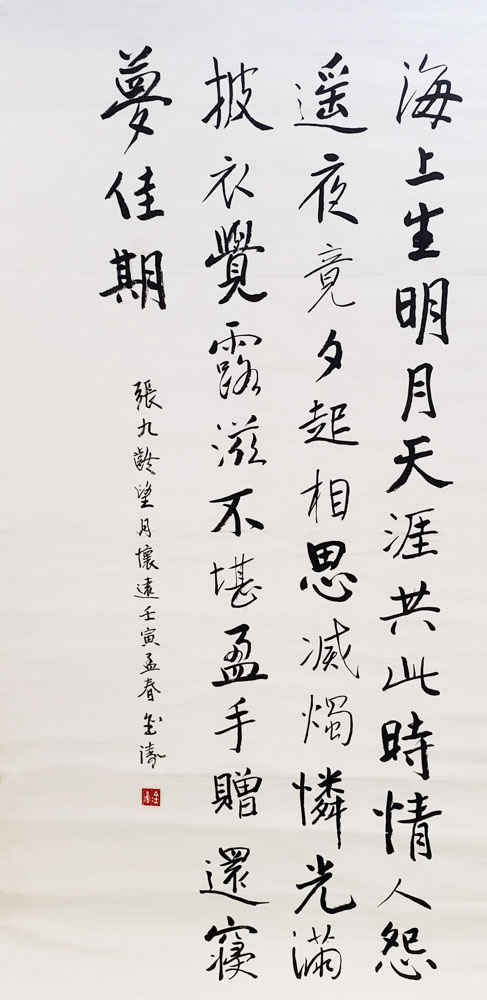 海上生明月天涯共此時情人怨
遥夜竟夕起相思減燭憐光滿
披衣覺露滋不堪盈手贈還寢
夢佳期
張九齡望月懷遠壬寅孟春金濤